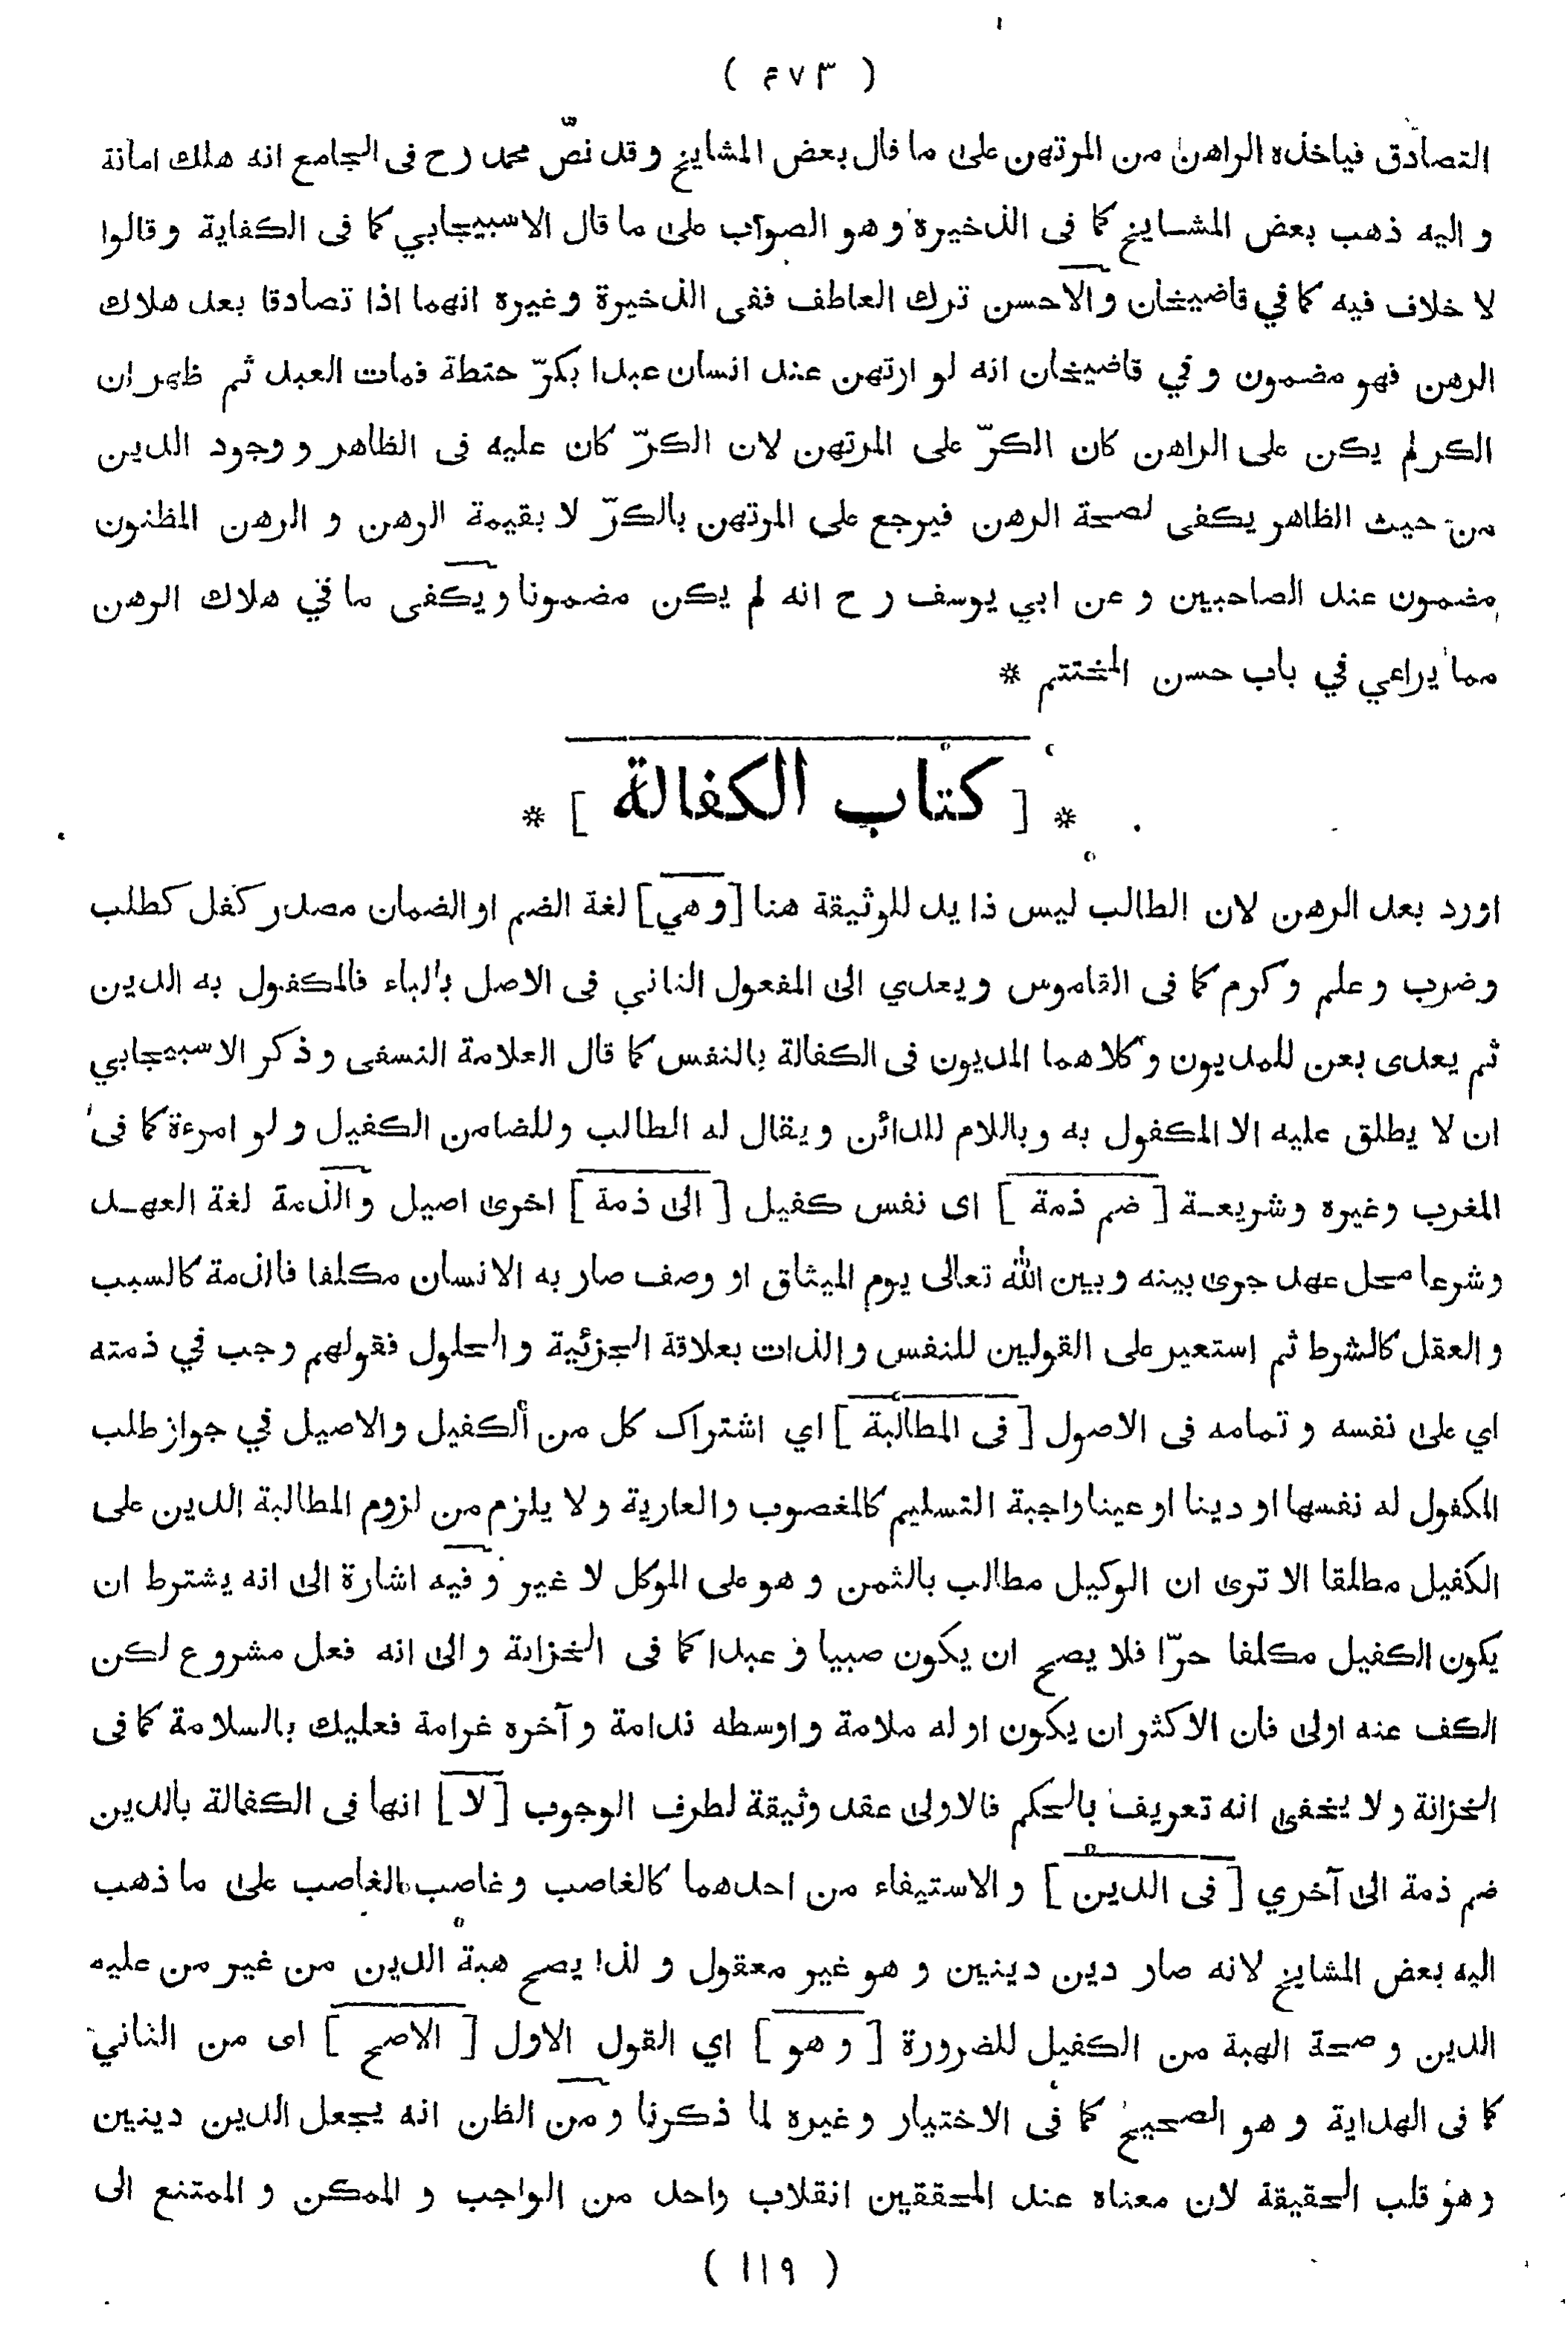 ( ٤٧٣ )
التصادق فياخذه الراهن من المرتهن على ما قال بعض المشايخ وقد نصّ محمد رح فى الجامع انه هلك امانة
و اليه ذهب بعض المشايخ كما فى الذخيرة وهو الصواب على ما قال الاسبيجابي كما فى الكفاية وقالوا
لا خلاف فيه كما في قاضيخان والاحسن ترك العاطف ففى الذخيرة وغيره انهما اذا تصادقا بعد هلاك
الرهن فهو مضمون وفي قاضيخان انه لو ارتهن عند انسان عبدا بكرّ حنطة فمات العبد ثم ظهر ان
الكر لم يكن على الراهن كان الكرّ على المرتهن لان الكرّ كان عليه فى الظاهر و وجود الدين
من حيث الظاهر يكفى لصحة الرهن فيرجع على المرتهن بالكرّ لا بقيمة الرهن و الرهن المظنون
مضمون عند الصاحبين و عن ابي يوسف رح انه لم يكن مضمونا ويكفى ما في هلاك الرهن
مما يراعي في باب حسن المختتم *
* [ كتاب الكفالة ] *
اورد بعد الرهن لان الطالب ليس ذا يد للوثيقة هنا [وهي] لغة الضم او الضمان مصدر كفل كطلب
وضرب وعلم وكرم كما فى القاموس ويعدي الى المفعول الثاني فى الاصل بالباء فالمكفول به الدين
ثم يعدى بعن للمديون وكلاهما المديون فى الكفالة بالنفس كما قال العلامة النسفى وذكر الاسبيجابي
ان لا يطلق عليه الا المكفول به وباللام للدائن ويقال له الطالب وللضامن الكفيل ولو امرءة كما فى
المغرب وغيره وشريعة [ ضم ذمة ] اى نفس كفيل [ الى ذمة ] اخرى اصيل والذمة لغة العهد
وشرعا محل عهد جرى بينه وبين الله تعالى يوم الميثاق او وصف صار به الانسان مكلفا فالذمة كالسبب
والعقل كالشرط ثم استعير على القولين للنفس والذات بعلاقة الجزئية والحلول فقولهم وجب في ذمته
اي على نفسه و تمامه فى الاصول [ فى المطالبة ] اي اشتراك كل من الكفيل والاصيل في جواز طلب
المكفول له نفسها او دينا او عينا واجبة التسليم كالمغصوب والعارية ولا يلزم من لزوم المطالبة الدين على
الكفيل مطلقا الا ترى ان الوكيل مطالب بالثمن وهو على الموكل لا غير وفيه اشارة الى انه يشترط ان
يكون الكفيل مكلفا حرّا فلا يصح ان يكون صبيا و عبدا كما فى الخزانة والى انه فعل مشروع لكن
الكف عنه اولى فان الاكثر ان يكون اوله ملامة واوسطه ندامة وآخره غرامة فعليك بالسلامة كما فى
الخزانة ولا يخفى انه تعريف بالحكم فالاولى عقد وثيقة لطرف الوجوب [ لا ] انها فى الكفالة بالدين
ضم ذمة الى آخري [ فى الدين ] والاستيفاء من احدهما كالغاصب وغاصب الغاصب على ما ذهب
اليه بعض المشايخ لانه صار دين دينين وهو غير معقول ولذا يصح هبة الدين من غير من عليه
الدين وصحة الهبة من الكفيل للضرورة [ وهو ] اي القول الاول [ الاصح ] اى من الثاني
كما فى الهداية وهو الصحيح كما فى الاختيار وغيره لما ذكرنا ومن الظن انه يجعل الدين دينين
وهو قلب الحقيقة لان معناه عند المحققين انقلاب واحد من الواجب و الممكن و الممتنع الى
( ١١٩ )